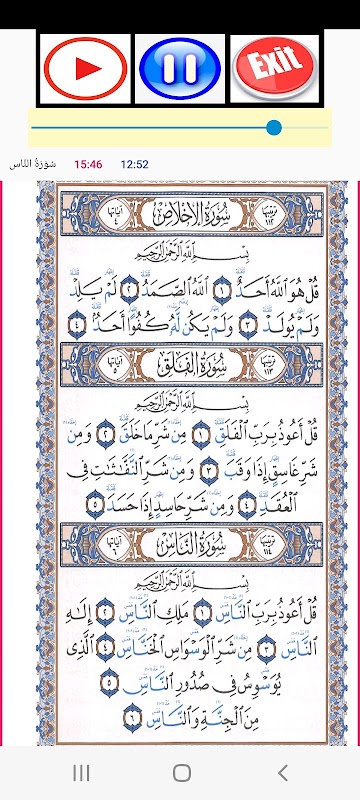 Exit
سورة الناس 15:46 12:52
ترتيبها ١١٢ سُورَةُ الإِخْلَاصِ آياتها ٤
بِسْمِ اللَّهِ الرَّحْمَٰنِ الرَّحِيمِ
قُلْ هُوَ اللَّهُ أَحَدٌ ١ اللَّهُ الصَّمَدُ ٢ لَمْ يَلِدْ
وَلَمْ يُولَدْ ٣ وَلَمْ يَكُن لَّهُ كُفُوًا أَحَدٌ ٤
ترتيبها ١١٣ سُورَةُ الْفَلَقِ آياتها ٥
بِسْمِ اللَّهِ الرَّحْمَٰنِ الرَّحِيمِ
قُلْ أَعُوذُ بِرَبِّ الْفَلَقِ ١ مِن شَرِّ مَا خَلَقَ ٢ وَمِن
شَرِّ غَاسِقٍ إِذَا وَقَبَ ٣ وَمِن شَرِّ النَّفَّاثَاتِ فِي
الْعُقَدِ ٤ وَمِن شَرِّ حَاسِدٍ إِذَا حَسَدَ ٥
ترتيبها ١١٤ سُورَةُ النَّاسِ آياتها ٦
بِسْمِ اللَّهِ الرَّحْمَٰنِ الرَّحِيمِ
قُلْ أَعُوذُ بِرَبِّ النَّاسِ ١ مَلِكِ النَّاسِ ٢ إِلَٰهِ
النَّاسِ ٣ مِن شَرِّ الْوَسْوَاسِ الْخَنَّاسِ ٤ الَّذِي
يُوَسْوِسُ فِي صُدُورِ النَّاسِ ٥
مِنَ الْجِنَّةِ وَالنَّاسِ ٦